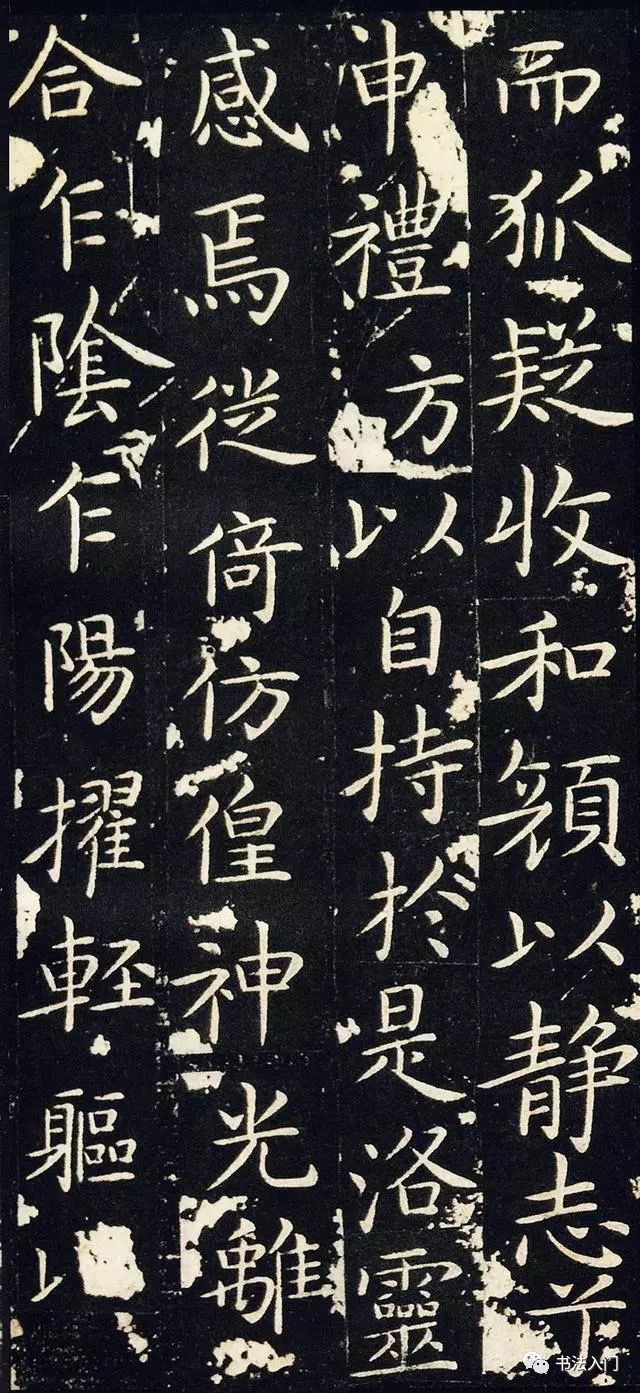 而狐疑收和顏以静志兮
申禮方以自持於是洛靈
感焉徙倚彷偟神光離
合乍陰乍陽擢輕軀以
书法入门